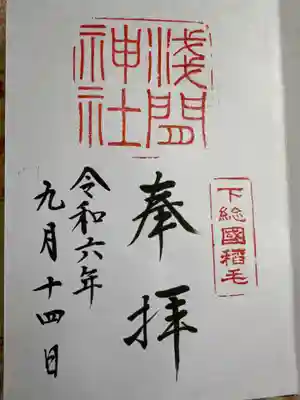 下総國稲毛
浅間神社
奉拝
令和六年
九月十四日